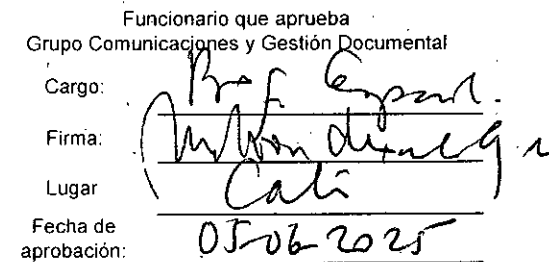 Funcionario que aprueba
Grupo Comunicaciones y Gestión Documental
Cargo: Prof. Especial.
Firma:
Lugar Cali
Fecha de aprobación: 05-06-2025